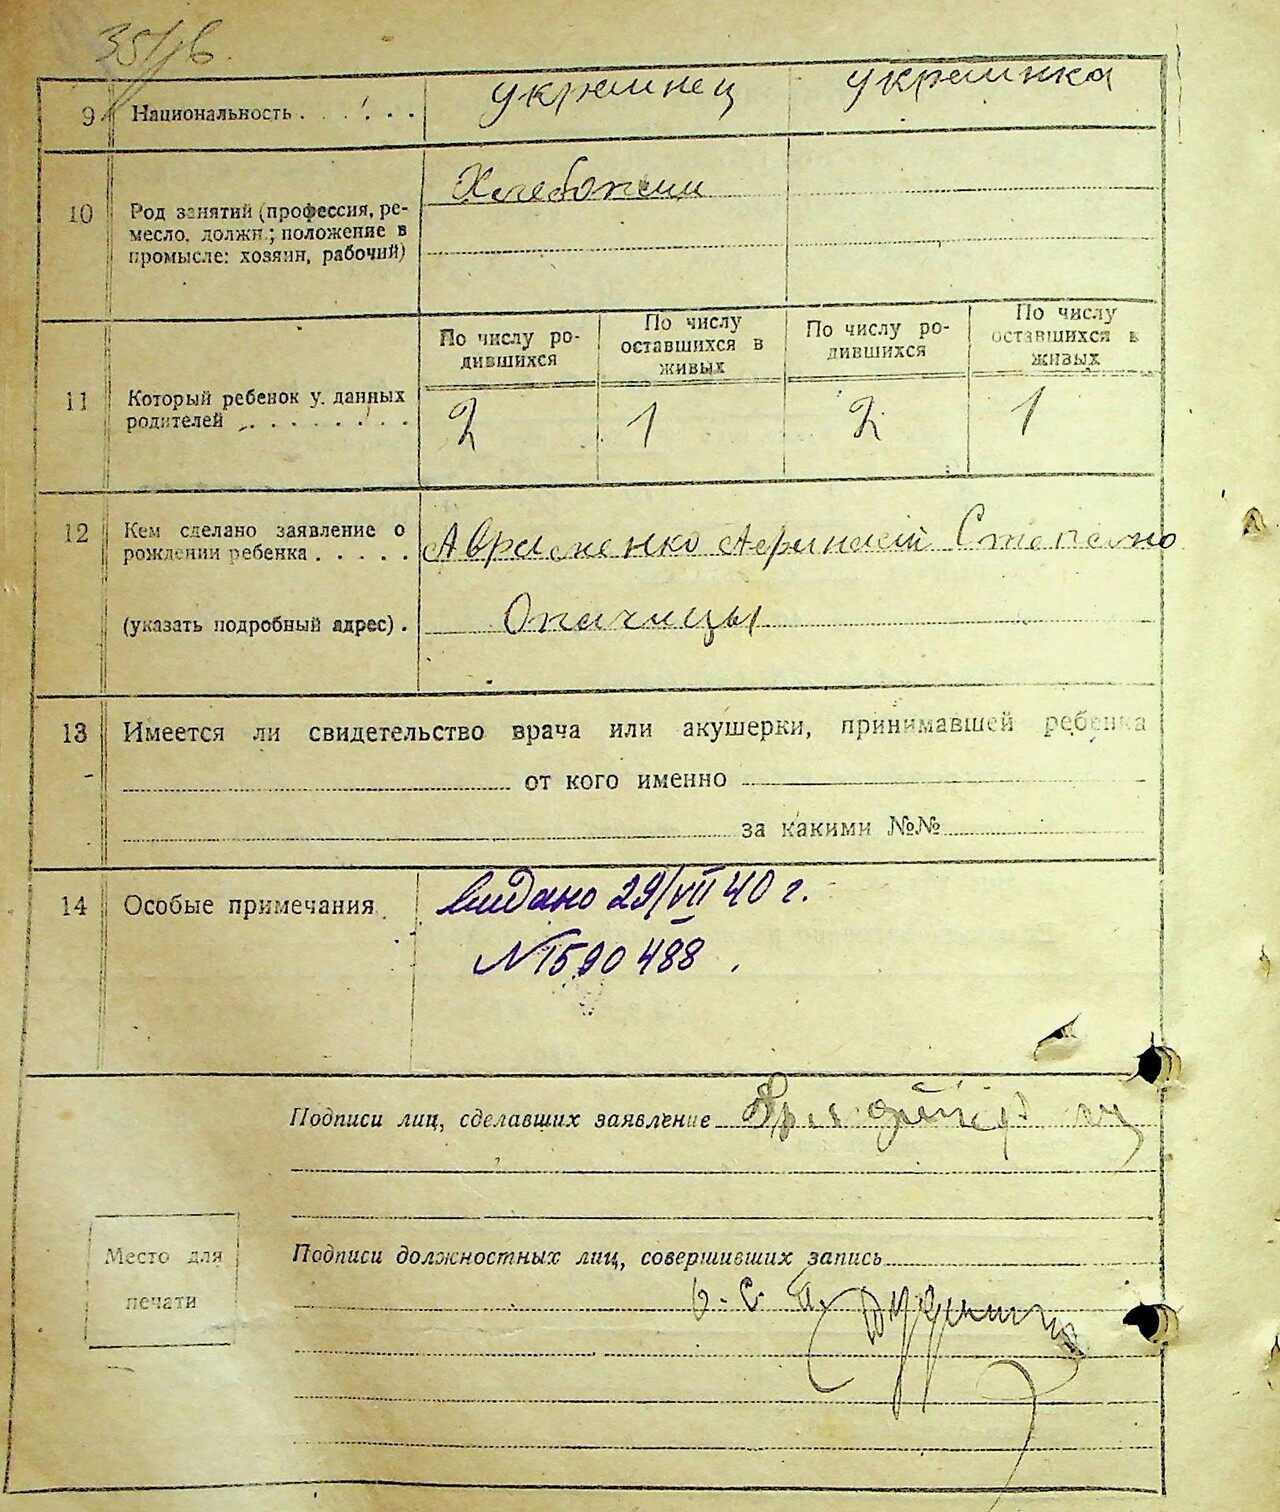 9 Национальность . . . . . . украинец украинка
10 Род занятий (профессия, ре-
месло, должн.; положение в
промысле: хозяин, рабочий)
Хлебопаш
По числу ро-
дившихся
По числу
оставшихся в
живых
По числу ро-
дившихся
По числу
оставшихся в
живых
11 Который ребенок у данных
родителей . . . . . . . .
2 1 2 1
12 Кем сделано заявление о
рождении ребенка . . . . .
Авраменко Афанасий Степано
(указать подробный адрес) .
Опачицы
13 Имеется ли свидетельство врача или акушерки, принимавшей ребенка
от кого именно
за какими №№
14 Особые примечания
видано 29/VII 40 г.
N 1590488
Подписи лиц, сделавших заявление
Место для
печати
Подписи должностных лиц, совершивших запись